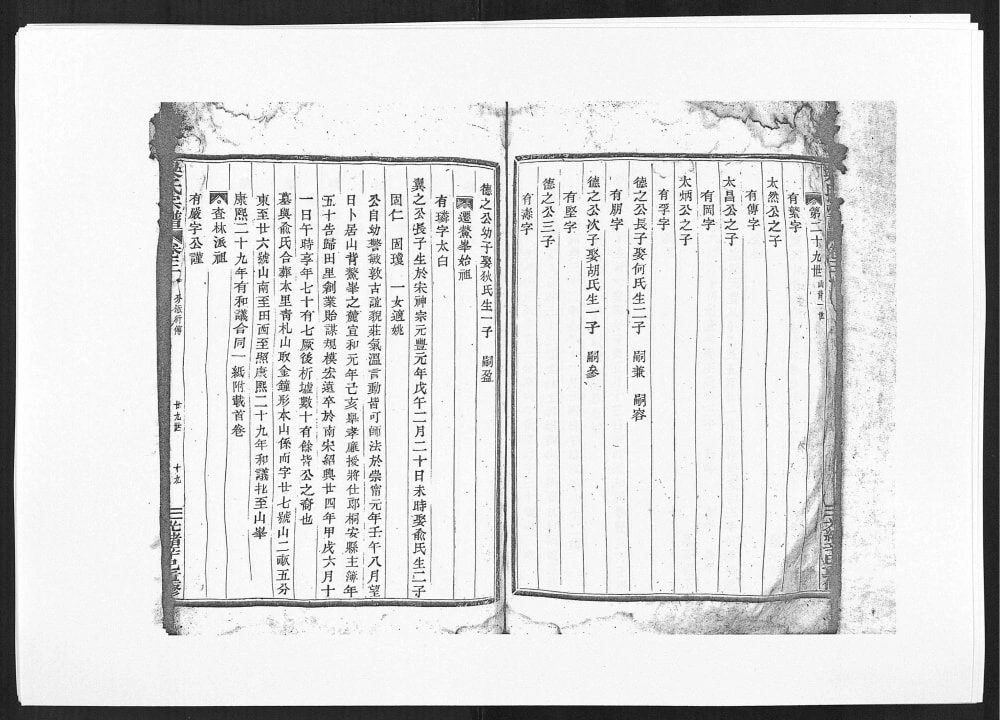 第二十九世
有繁字
太然公之子
有傳字
太昌公之子
有岡字
太炳公之子
有孚字
德之公長子娶何氏生二子 嗣兼 嗣容
有朋字
德之公次子娶胡氏生一子 嗣參
有堅字
德之公三子
有壽字
德之公幼子娶狄氏生一子 嗣盈
遷鰲峯始祖
有璘字太白
翼之公長子生於宋神宗元豐元年戊午二月二十日未時娶兪氏生二子
固仁 固瓊 一女適姚
公自幼警敏敦古誼貌莊氣溫言動皆可師法於崇甯元年壬午八月望
日卜居山背鰲峯之麓宣和元年己亥舉孝廉授將仕郎桐安縣主簿年
五十告歸田里創業貽謀規模宏遠卒於南宋紹興廿四年甲戌六月十
一日午時享年七十有七厥後析墟數十有餘皆公之裔也
墓與兪氏合葬本里靑札山取金鐘形本山係而字廿七號山二畝五分
東至廿六號山南至田西至照康熙二十九年和議北至山峯
康熙二十九年有和議合同一紙附載首卷
查林派祖
有嚴字公謹
吳氏宗譜
廿九世
十九
光緒辛巳重修